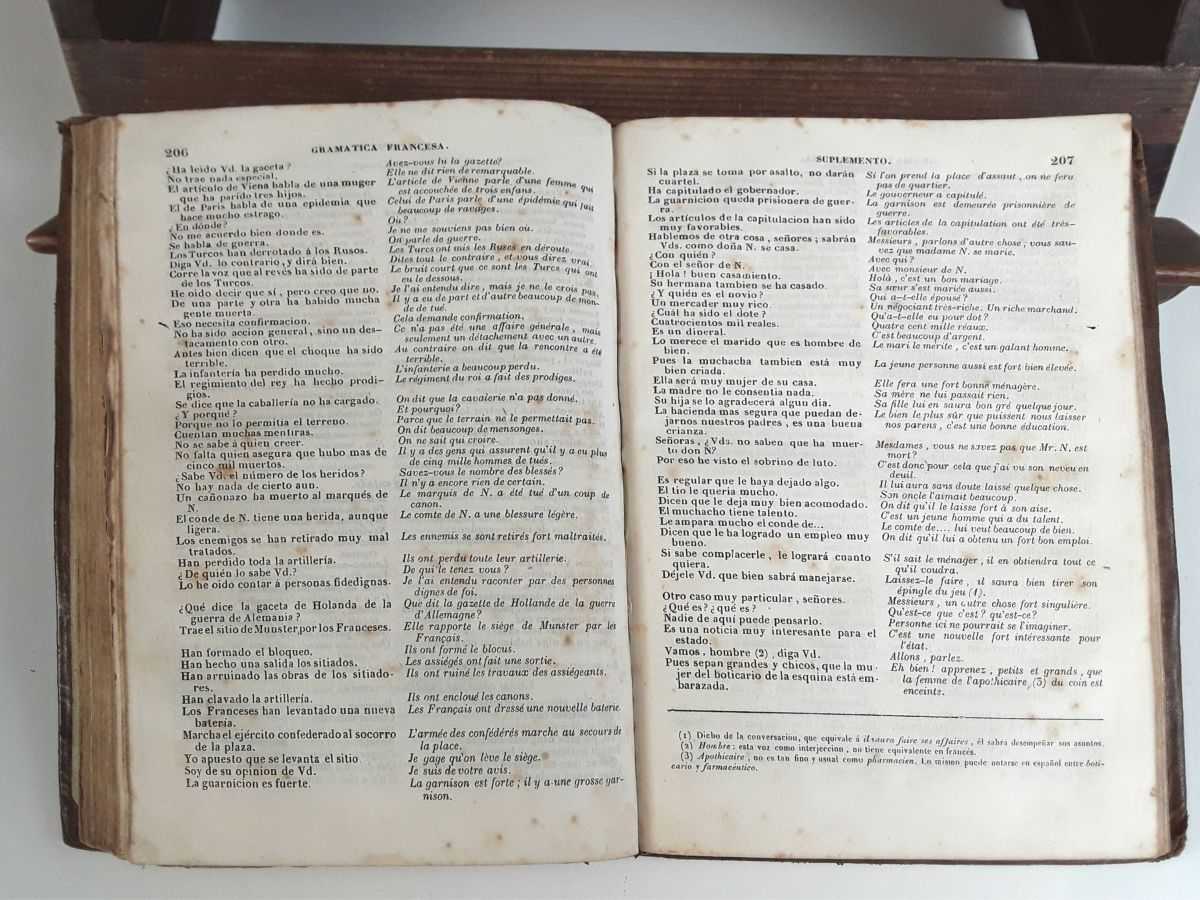 206
GRAMATICA FRANCESA.
¿Ha leido Vd. la gaceta?
No trae nada especial.
El artículo de Viena habla de una muger
que ha parido tres hijos.
El de Paris habla de una epidemia que
hace mucho estrago.
¿En dónde?
No me acuerdo bien donde es.
Se habla de guerra.
Los Turcos han derrotado á los Rusos.
Diga Vd. lo contrario, y dirá bien.
Corre la voz que al revés ha sido de parte
de los Turcos.
He oido decir que sí, pero creo que no.
De una parte y otra ha habido mucha
gente muerta.
Eso necesita confirmacion.
No ha sido accion general, sino un des-
tacamento con otro.
Antes bien dicen que el choque ha sido
terrible.
La infantería ha perdido mucho.
El regimiento del rey ha hecho prodi-
gios.
Se dice que la caballería no ha cargado.
¿Y porqué?
Porque no lo permitia el terreno.
Cuentan muchas mentiras.
No se sabe á quien creer.
No falta quien asegura que hubo mas de
cinco mil muertos.
¿Sabe Vd. el número de los heridos?
No hay nada de cierto aun.
Un cañonazo ha muerto al marqués de
N.
El conde de N. tiene una herida, aunque
ligera.
Los enemigos se han retirado muy mal
tratados.
Han perdido toda la artillería.
¿De quién lo sabe Vd.?
Lo he oido contar á personas fidedignas.
¿Qué dice la gaceta de Holanda de la
guerra de Alemania?
Trae el sitio de Munster, por los Franceses.
Han formado el bloqueo.
Han hecho una salida los sitiados.
Han arruinado las obras de los sitiado-
res.
Han clavado la artillería.
Los Franceses han levantado una nueva
batería.
Marcha el ejército confederado al socorro
de la plaza.
Yo apuesto que se levanta el sitio
Soy de su opinion de Vd.
La guarnicion es fuerte.
Avez-vous lu la gazette?
Elle ne dit rien de remarquable.
L'article de Vienne parle d'une femme qui
est accouchée de trois enfans.
Celui de Paris parle d'une épidémie qui fait
beaucoup de ravages.
Où?
Je ne me souviens pas bien où.
On parle de guerre.
Les Turcs ont mis les Russes en déroute.
Dites tout le contraire, et vous direz vrai.
Le bruit court que ce sont les Turcs qui ont
eu le dessous.
Je l'ai entendu dire, mais je ne le crois pas.
Il y a eu de part et d'autre beaucoup de mon-
de de tué.
Cela demande confirmation.
Ce n'a pas été une affaire générale, mais
seulement un détachement avec un autre.
Au contraire on dit que la rencontre a été
terrible.
L'infanterie a beaucoup perdu.
Le régiment du roi a fait des prodiges.
On dit que la cavalerie n'a pas donné.
Et pourquoi?
Parce que le terrain ne le permettait pas.
On dit beaucoup de mensonges.
On ne sait qui croire.
Il y a des gens qui assurent qu'il y a eu plus
de cinq mille hommes de tués.
Savez-vous le nombre des blessés?
Il n'y a encore rien de certain.
Le marquis de N. a été tué d'un coup de
canon.
Le comte de N. a une blessure légère.
Les ennemis se sont retirés fort maltraités.
Ils ont perdu toute leur artillerie.
De qui le tenez vous?
Je l'ai entendu raconter par des personnes
dignes de foi.
Que dit la gazette de Hollande de la guerre
d'Allemagne?
Elle rapporte le siège de Munster par les
Français.
Ils ont formé le blocus.
Les assiégés ont fait une sortie.
Ils ont ruiné les travaux des assiégeants.
Ils ont encloué les canons.
Les Français ont dressé une nouvelle baterie
L'armée des confédérés marche au secours de
la place.
Je gage qu'on lève le siège.
Je suis de votre avis.
La garnison est forte; il y a une grosse gar-
nison.
SUPLEMENTO.
207
Si la plaza se toma por asalto, no darán
cuartel.
Ha capitulado el gobernador.
La guarnicion queda prisionera de guer-
ra.
Los artículos de la capitulacion han sido
muy favorables.
Hablemos de otra cosa, señores; sabrán
Vds. como doña N. se casa.
¿Con quién?
Con el señor de N.
¡Hola! buen casamiento.
Su hermana tambien se ha casado.
¿Y quién es el novio?
Un mercader muy rico.
¿Cuál ha sido el dote?
Cuatrocientos mil reales.
Es un dineral.
Lo merece el marido que es hombre de
bien.
Pues la muchacha tambien está muy
bien criada.
Ella será muy muger de su casa.
La madre no le consentia nada.
Su hija se lo agradecerá algun dia.
La hacienda mas segura que puedan de-
jarnos nuestros padres, es una buena
crianza.
Señoras, ¿Vds. no saben que ha muer-
to don N?
Por eso he visto el sobrino de luto.
Es regular que le haya dejado algo.
El tio le queria mucho.
Dicen que le deja muy bien acomodado.
El muchacho tiene talento.
Le ampara mucho el conde de...
Dicen que le ha logrado un empleo muy
bueno.
Si sabe complacerle, le logrará cuanto
quiera.
Déjele Vd. que bien sabrá manejarse.
Otro caso muy particular, señores.
¿Qué es? ¿qué es?
Nadie de aquí puede pensarlo.
Es una noticia muy interesante para el
estado.
Vamos, hombre (2), diga Vd.
Pues sepan grandes y chicos, que la mu-
jer del boticario de la esquina está em-
barazada.
Si l'on prend la place d'assaut, on ne fera
pas de quartier.
Le gouverneur a capitulé.
La garnison est demeurée prisonnière de
guerre.
Les articles de la capitulation ont été très-
favorables.
Messieurs, parlons d'autre chose, vous sau-
vez que madame N. se marie.
Avec qui?
Avec monsieur de N.
Holà, c'est un bon mariage.
Sa sœur s'est mariée aussi.
Qui a-t-elle épousé?
Un négociant très-riche. Un riche marchand.
Qu'a-t-elle eu pour dot?
Quatre cent mille réaux.
C'est beaucoup d'argent.
Le mari le mérite, c'est un galant homme.
La jeune personne aussi est fort bien élevée.
Elle fera une fort bonne ménagère.
Sa mère ne lui passait rien.
Sa fille lui en saura bon gré quelque jour.
Le bien le plus sûr que puissent nous laisser
nos parens, c'est une bonne éducation.
Mesdames, vous ne savez pas que Mr. N. est
mort?
C'est donc pour cela que j'ai vu son neveu en
deuil.
Il lui aura sans doute laissé quelque chose.
Son oncle l'aimait beaucoup.
On dit qu'il le laisse fort à son aise.
C'est un jeune homme qui a du talent.
Le comte de.... lui veut beaucoup de bien.
On dit qu'il lui a obtenu un fort bon emploi.
S'il sait le ménager, il en obtiendra tout ce
qu'il voudra.
Laissez-le faire, il saura bien tirer son
épingle du jeu (1).
Messieurs, un autre chose fort singulière.
Qu'est-ce que c'est? qu'est-ce?
Personne ici ne pourrait se l'imaginer.
C'est une nouvelle fort intéressante pour
l'état.
Allons, parlez.
Eh bien! apprenez, petits et grands, que
la femme de l'apothicaire, (3) du coin est
enceinte.
(1) Dicho de la conversacion, que equivale á il saura faire ses affaires, él sabrá desempeñar sus asuntos.
(2) Hombre: esta voz como interjeccion, no tiene equivalente en francés.
(3) Apothicaire, no es tan fino y usual como pharmacien. Lo mismo puede notarse en español entre boti-
cario y farmacéutico.